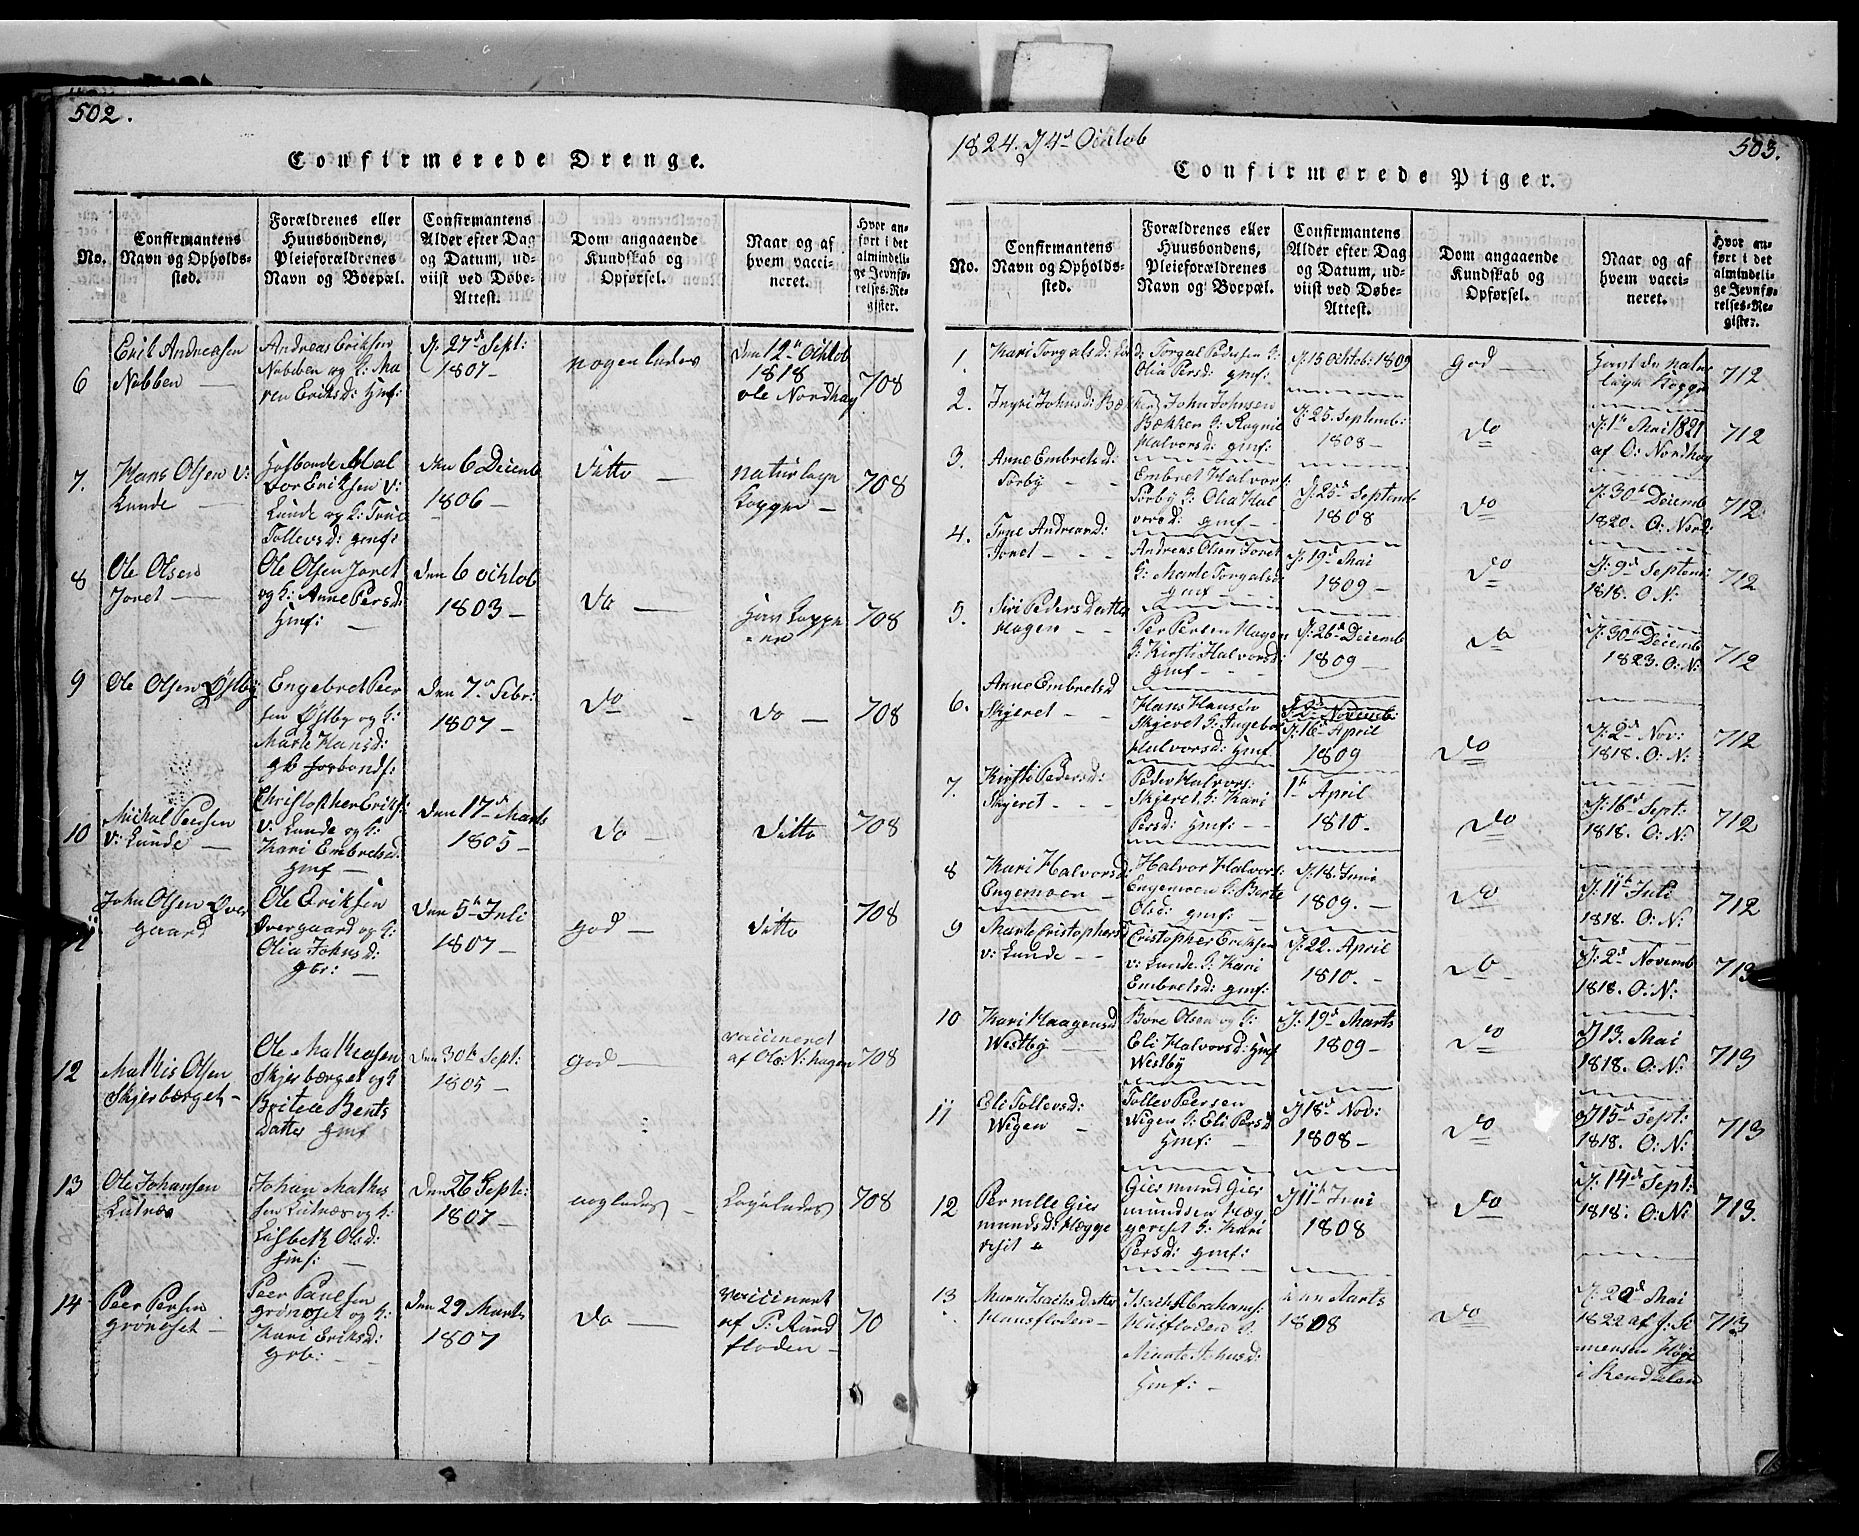 502.
Confirmerede Drenge.
No.
Confirmantens
Navn og Opholds-
sted.
Forældrenes eller
Huusbondens,
Pleieforældrenes
Navn og Boepæl.
Confirmantens
Alder efter Dag
og Datum, ud-
viist ved Døbe-
Attest.
Dom angaaende
Kundskab og
Opførsel.
Naar og af
hvem vacci-
neret.
Hvor an-
ført i det
almindeli-
ge Jevnfø-
relses-Re-
gister.
6
Erik Andreasen
Nebben
Andreas Eriksen
Nebben og H: Ma
ren Eriksd: Gmf:
d. 27d Sept:
1807
nogenledes
den 12te Ochtob
1818
ole Nordhag
708
7.
Hans Olsen v:
Lunde
Hal
vor Eriksen v:
Lunde og H:
Tollevsd: gmf:
den 6 Decemb
1806
ditto
708
8
Ole Olsen
Joret
Ole Olsen Joret
og H: Anne Persd:
Gmf:
den 6 ochtob
1803
do
708
9
Ole Olsen Østby
Engebret Peer
sen Østby og H:
Marte Hansd:
den 7de Febr:
1807
do
do
708
10
Michal Peersen
v: Lunde
Christopher Eriks:
v: Lunde og H:
Kari Embretsd:
gmf
den 17de Marts
1805
do
ditto
708
11
John Olsen Over
gaard
Ole Eriksen
Overgaard og H:
Olia Johnsd:
gbr:
den 5te Juli
1807
god
ditto
708
12
Mathis Olsen
Skjersbærget
Ole Mathiasen
Skjersbærget og H
Bents
datter Gmf
den 30te Sept:
1805
god
vaccinered
af Ole N:hagen
708
13
Ole Johansen
Lutnæs
Johan Mathis
sen Lutnæs og H:
Lisbeth Olsd:
Gmf:
den 26 Septe:
1807
nogledes
708
14
Peer Persen
grønoset
Peer Paulsen
grønoset og H:
Kari Eriksd:
grb:
den 29 Marts
1807
do
vaccineret
af P: Rund
floden
70
1824. d 4d Ochtob
503.
Confirmerede Piger.
No.
Confirmantens
Navn og Opholds-
sted.
Forældrenes eller
Huusbondens,
Pleieforældrenes
Navn og Boepæl.
Confirmantens
Alder efter Dag
og Datum, ud-
viist ved Døbe-
Attest.
Dom angaaende
Kundskab og
Opførsel.
Naar og af
hvem vacci-
neret.
Hvor an-
ført i det
almindeli-
ge Jevnfø-
relses-Re-
gister.
1.
Kari Torgalsd:
Torgal Pedersen H:
Olia Persd: gmf:
d: 15 Ochtob: 1809
god
712
2.
Ingri Johnsd: Bæk
John Johnsen
Bækken H: Ragnil
Halvorsd: gmf:
d: 25. Septemb:
1808
do
d: 1te Mai 1821
af O: Nordhag
712
3.
Anne Embretsd:
Sørby
Embret Halvors
Sørby H: Olia Hal
vorsd: gmf
d: 25d Septemb
1808
do
d: 30te Decemb
1820. O: Nord:
712
4.
Andreasd:
Joret
Andreas Olsen Joret
H: Marte Torgalsd
gmf
d: 19d Mai
1809
do
d: 9d Septem:
1818. O: N:
712
5.
Siri Peders Datter
Hagen
Per Persen Hagen
H: Kirsti Halvorsd:
gmf
d: 26d Decemb
1809
do
d: 30te Decemb
1823. O: N:
712
6.
Anne Embretsd
Skjeret
Hans Hansen
Skjeret H: Ingebor
Halvorsd: Gmf
d: 2d Novemb:
d: 16 April
1809
do
d: 2d Nov:
1818. O: N:
712
7.
Kirsti Pedersd:
Skjeret
Peder Halvors:
Skjeret H: Kari
Persd: Gmf:
1te April
1810.
do
d: 16d Sept:
1818. O: N:
712
8
Kari Halvorsd:
Engemoen
Halvor Halvors:
Engemoen H: Berte
Olsd: gmf:
d: 18. Juni
1809.
do
d: 11te Juli
1818. O: N:
712
9
Marte Cristophersd
v: Lunde
Cristopher Eriksen
v: Lunde H: Kari
Embretsd: gmf:
d: 22. April
1810.
do
d: 2d Novemb
1818. O: N:
713
10
Kari Haagensd
Westby
Bore Olsen og H:
Eli Halvorsd: Gmf
Westby
d: 19d Marts
1809
do
d 13. Mai
1818. O: N:
713
11
Eli Tollevsd:
Wigen
Tollev Peersen
Wigen H: Eli Persd
Gmf:
d 18d Nov:
1808
do
d 15d Sept:
1818. O: N:
713
12
Pernille Gies
mundsd: Hægge
Giesmund Gies
mundsen Hæg
H: Kari
Persd: gmf:
d 11te Juni
1808
do
d: 14d Sept:
1818. O: N:
713.
13
Isachs Datter
Husfloden
Isach Abrahams:
Husfloden H:
Marte Johnsd:
Gmf:
Marts
1808
do
d: 20d Mai
1822 af J: Si
monsen
i Rendalen
713